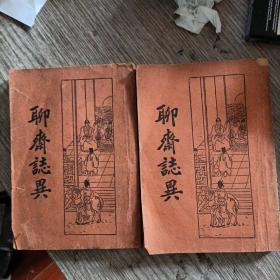 聊齋誌異
聊齋誌異